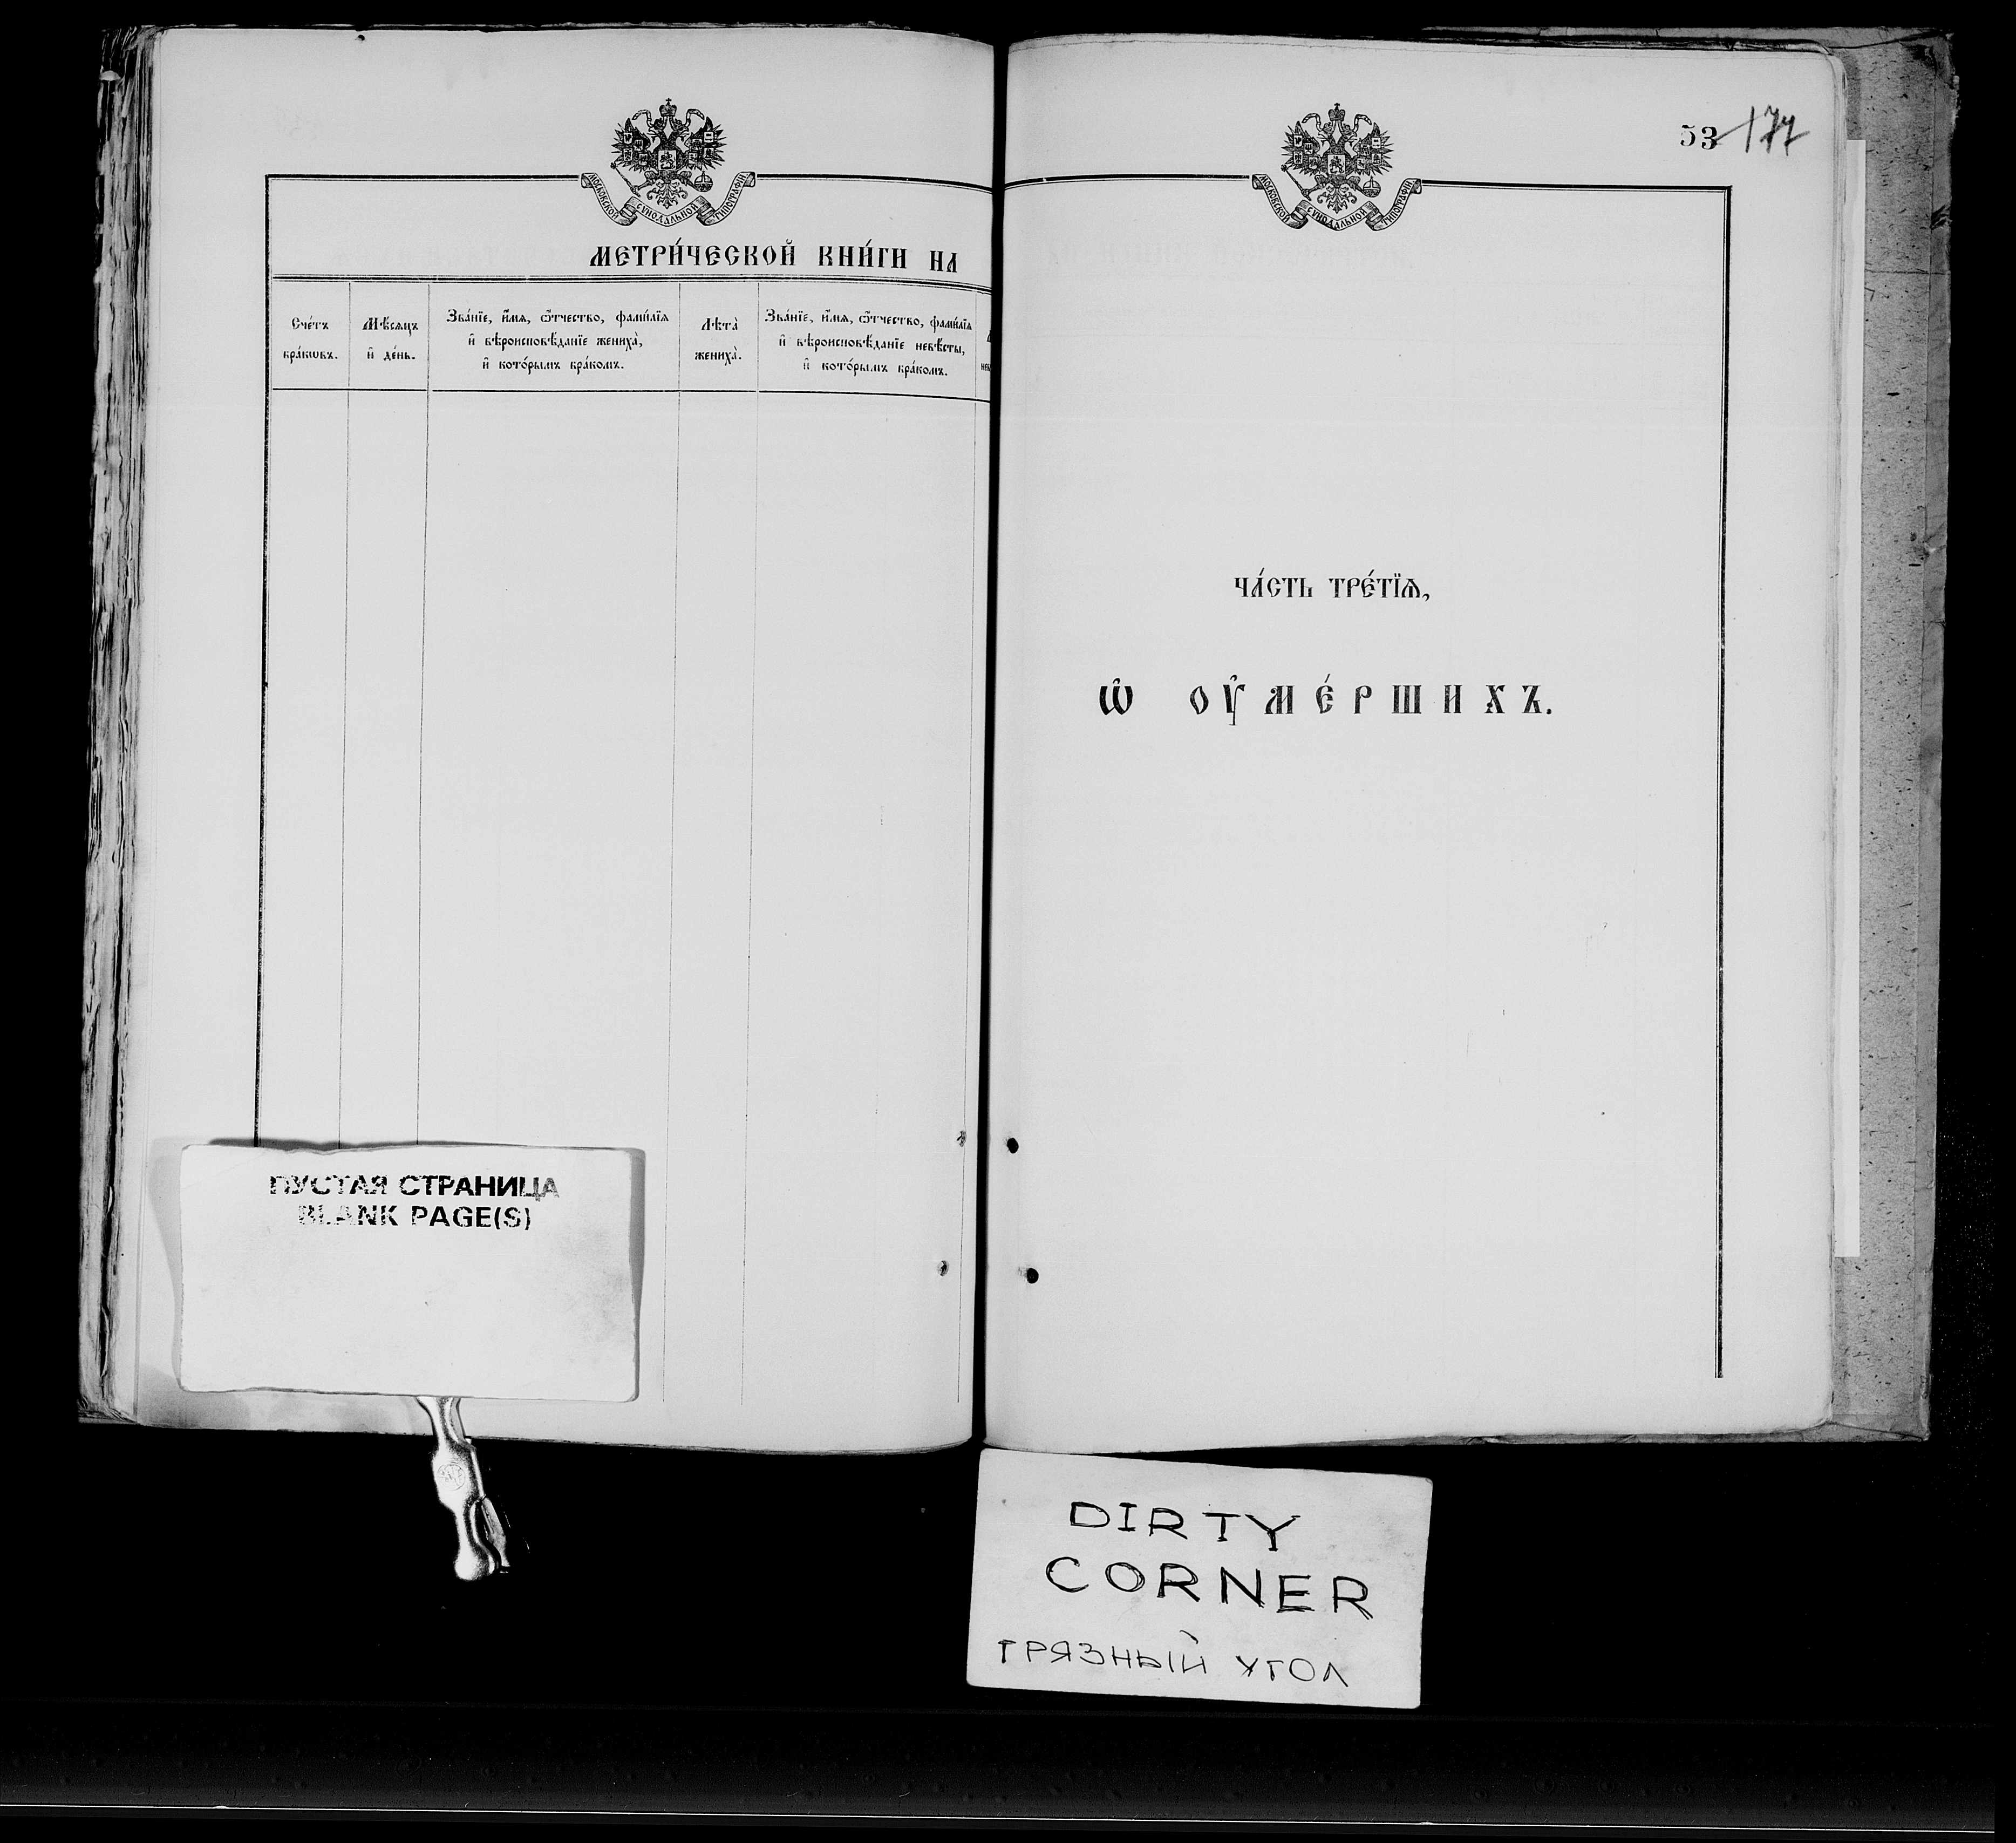 МОСКОВСКОЙ СУНОДАЛЬНОЙ ТИПОГРАФІИ
МЕТРИ́ЧЕСКОЙ КНИ́ГИ НА
Сче́тъ
бра́кѡвъ.
Мѣ́сѧцъ
и҆ де́нь.
Зва́нїе, и҆́мѧ, ѻ҆́тчество, фами́лїѧ
и҆ вѣроисповѣ́данїе жениха̀,
и҆ кото́рымъ бра́комъ.
Лѣта̀
жениха̀.
Зва́нїе, и҆́мѧ, ѻ҆́тчество, фами́лїѧ
и҆ вѣроисповѣ́данїе невѣ́сты,
и҆ кото́рымъ бра́комъ.
ПУСТАЯ СТРАНИЦА
BLANK PAGE(S)
53 177
МОСКОВСКОЙ СУНОДАЛЬНОЙ ТИПОГРАФІИ
ЧА́СТЬ ТРЕ́ТЇѦ,
Ѡ҆ ОУ҆МЕ́РШИХЪ.
DIRTY
CORNER
ГРЯЗНЫЙ УГОЛ